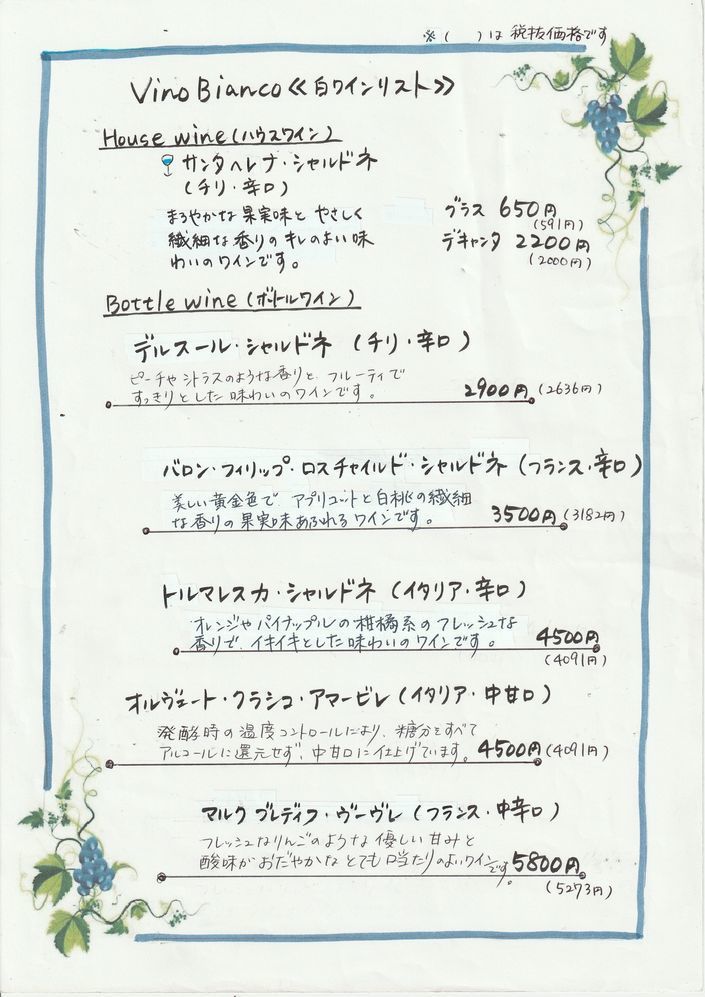 ※(　)は税抜価格です
Vino Bianco≪白ワインリスト≫
House wine(ハウスワイン)
サンタヘレナ・シャルドネ
(チリ・辛口)
まろやかな果実味と やさしく
繊細な香りのキレのよい味
わいのワインです。
グラス 650円
(591円)
デキャンタ 2200円
(2000円)
Bottle wine(ボトルワイン)
デルスール・シャルドネ (チリ・辛口)
ピーチやシトラスのような香りと、フルーティで
すっきりとした味わいのワインです。 2900円(2636円)
バロン・フィリップ・ロスチャイルド・シャルドネ(フランス・辛口)
美しい黄金色で アプリコットと白桃の繊細
な香りの果実味あふれるワインです。 3500円(3182円)
トルマレスカ・シャルドネ (イタリア・辛口)
オレンジやパイナップルの柑橘系のフレッシュな
香りで、イキイキとした味わいのワインです。 4500円
(4091円)
オルヴェート・クラシコ・アマービレ(イタリア・中甘口)
発酵時の温度コントロールにより、糖分をすべて
アルコールに還元せず、中甘口に仕上げています。 4500円(4091円)
マルク ブレディフ・ヴーヴレ (フランス・中辛口)
フレッシュなりんごのような優しい甘みと
酸味がおだやかなとても口当たりのよいワインです。 5800円
(5273円)